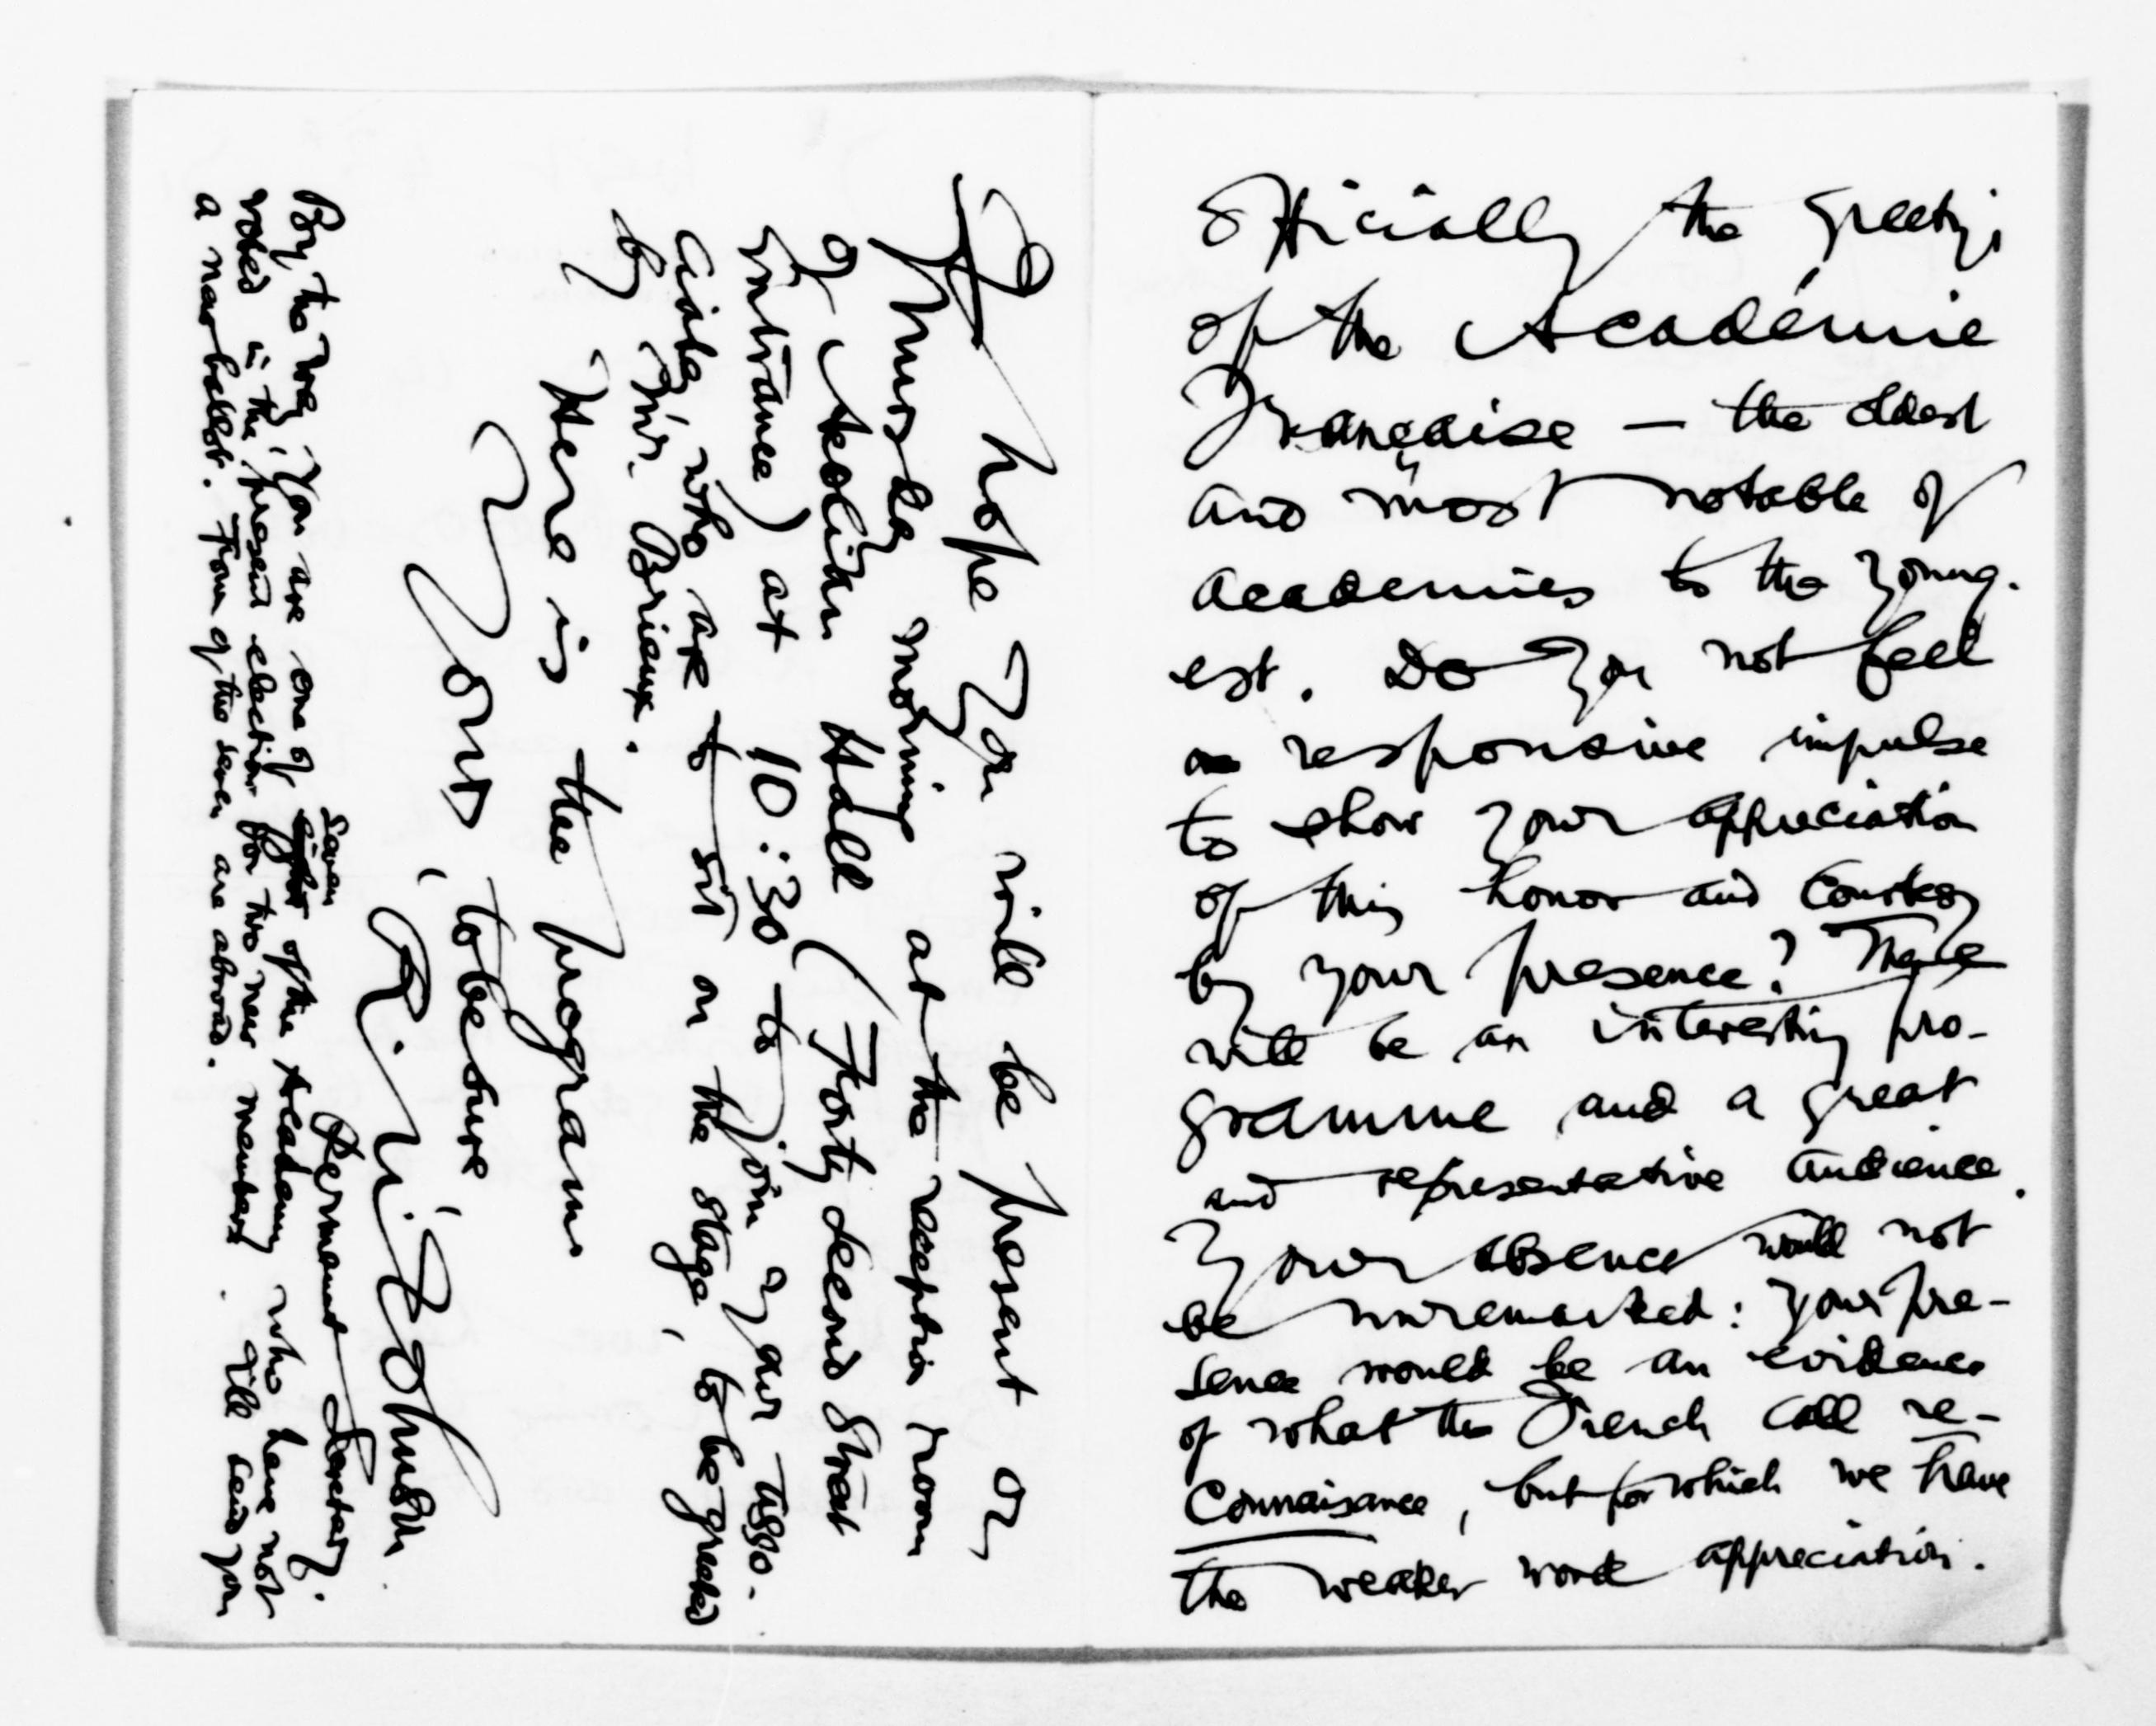 officially the greetings
of the Académie
Française — the oldest
and most notable of
academies to the young-
est. Do you not feel
a responsive impulse
to show your appreciation
of this honor and courtesy
by your presence? There
will be an interesting pro-
gramme and a great
and representative audience.
Your absence would not
be unremarked: your pre-
sence would be an evidence
of what the French call re-
connaisance, but for which we have
the weaker word appreciation.
I hope you will be present on
Thursday morning at the reception room
of Aeolian Hall (Forty second Street
entrance) at 10:30 to join your asso-
ciates, who are to sit on the stage, to be greeted
by Mr. Brieux.
Here is the program
Yours, to be sure,
R. U. Johnson
Permanent Secretary.
By the way, you are one of seven of the Academy who have not
voted in the present election for two new members. I'll send you
a new ballot. Four of the seven are abroad.